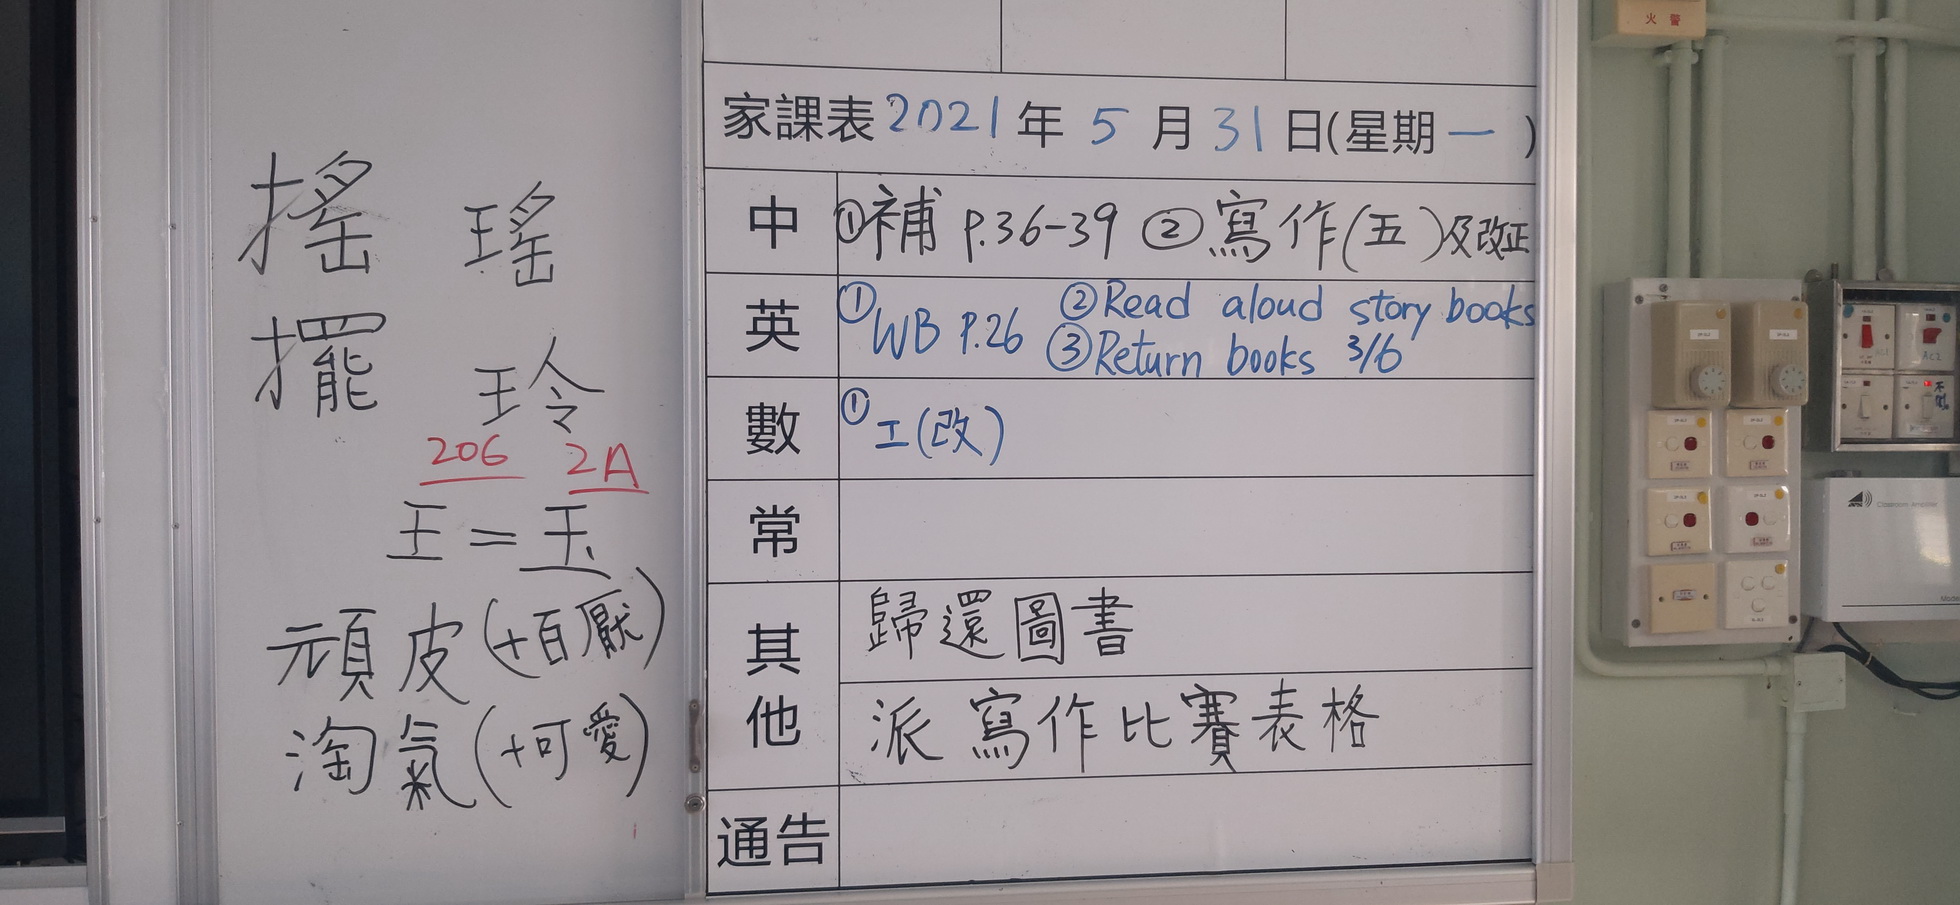 搖 瑤
擺 玲
206 2A
王=玉
頑皮(+百厭)
淘氣(+可愛)
家課表2021年5月31日(星期一)
中 ①補 P.36-39 ②寫作(五)及改正
英 ①WB P.26 ②Read aloud story books
③Return books 3/6
數 ①工(改)
常
其他 歸還圖書
派寫作比賽表格
通告
火警
Classroom Amplifier